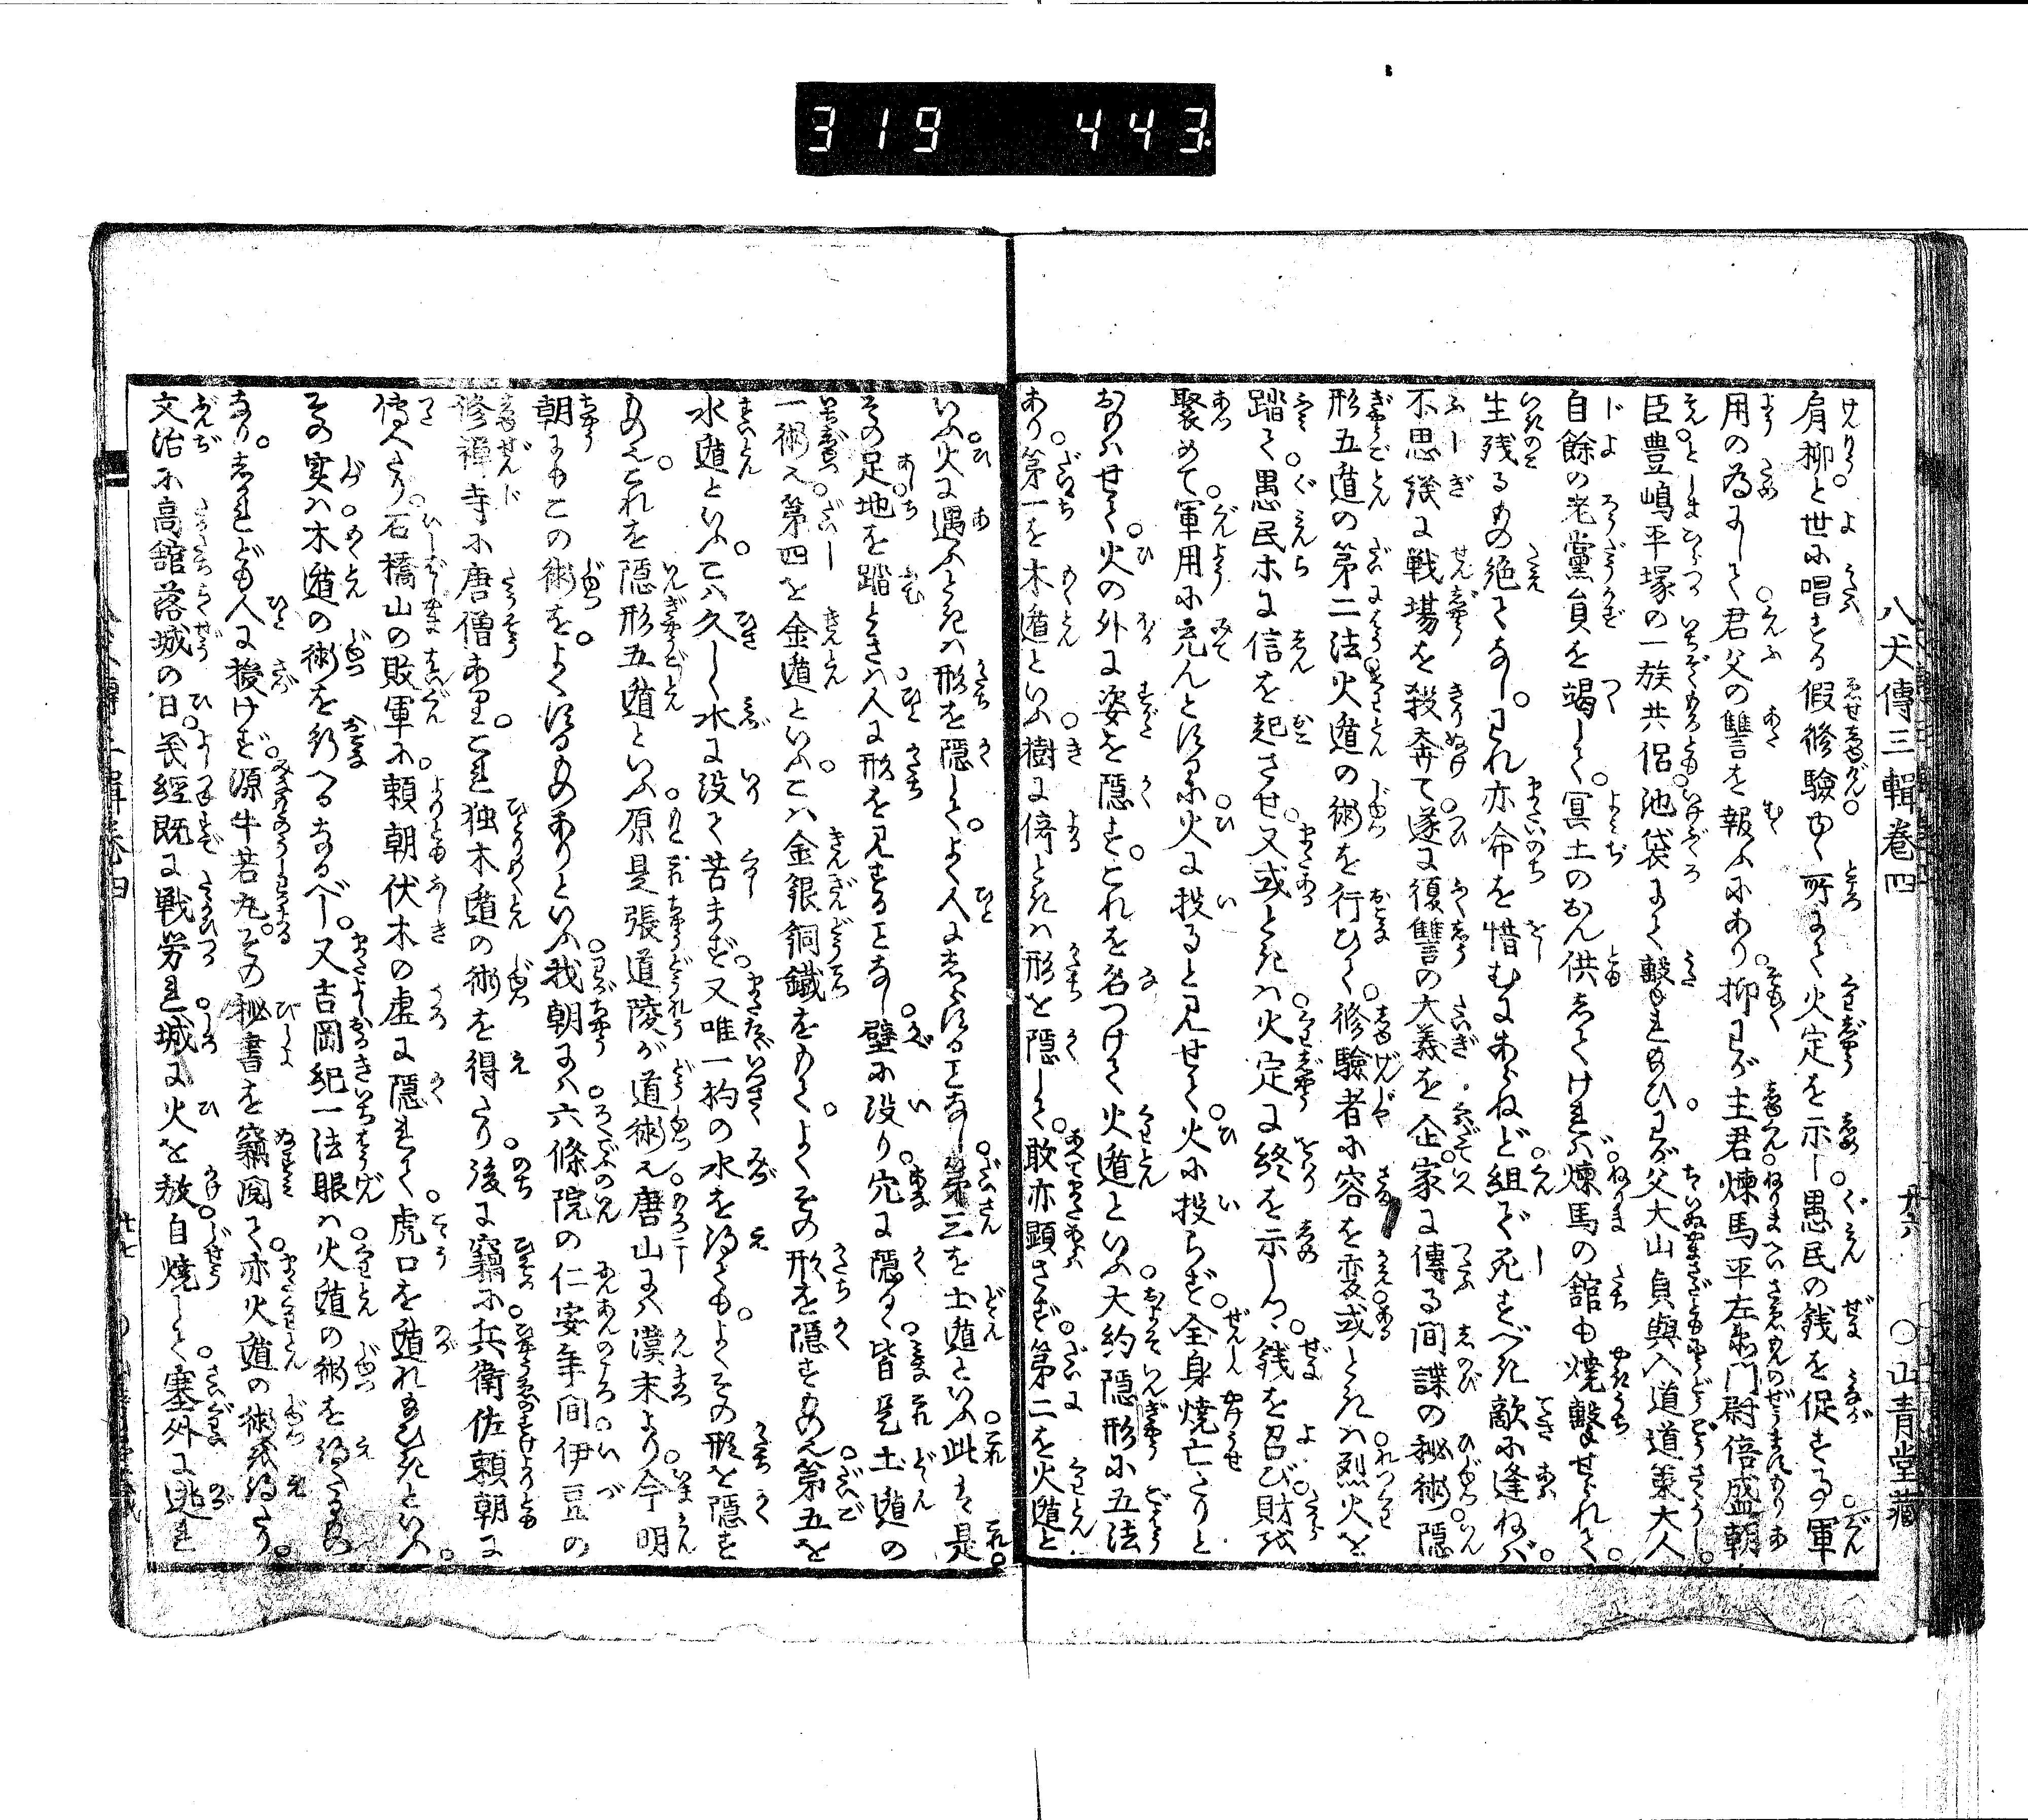 319 443
八犬傳三輯巻四 廿六 ○山青堂藏
肩柳と世に唱する假修驗。ゆく所にて火定を示し。愚民の銭を促する。軍
用の為にして君父の讐を報ふにあり。抑わが主君煉馬平左衛門尉倍盛朝
臣。豊嶋平塚の一族共侶。池袋にて敵撃れ給ひ。わが父大山貞與入道道策大人。
自餘の老黨員を竭して。冥土のおん供したりければ。煉馬の舘も燒撃せられて。
生残るもの絶てなし。われ亦命を惜むにあらねど。組で死すべき敵に逢ねば。
不思議に戦場を殺奔て。遂に復讐の大義を企。家に傳る間諜の秘術。隱
形五遁の第二法。火遁の術を行ひて。修驗者に容を変。或ときは烈火を
踏て。愚民ホに信を起させ。又或ときは火定に終を示しつ。銭を召び財を
聚めて。軍用に充んとはかるに。火に投ると見せて。火に投らず。全身燒亡たりと
おもはせて。火の外に姿を隱す。これを名つけて火遁といふ。大約隱形に五法
あり。第一を木遁といふ。樹に倚ときは形を隱して。敢亦顕さず。第二を火遁と
いふ。火に遇ふときは形を隱して。よく人にしらするコトなし。第三を土遁といふ。此は是。
その足地を踏ときは。人に形を見するコトなし。壁に没り。穴に隱る。皆是土遁の
一術也。第四を金遁といふ。こは金銀銅鐵をもて。よくその形を隱すもの也。第五を
水遁といふ。こは久しく水に没て苦まず。又唯一杓の水を得ても。よくその形を隱す
もの也。これを隱形五遁といふ。原是張道陵が道術也。唐山には漢末より。今明
朝にもこの術を。よくするものありといふ。我朝には。六條院の仁安年間。伊豆の
修禪寺に唐僧あり。これ独木遁の術を得たり。後に竊に。兵衛佐頼朝に
傳へたり。石橋山の敗軍に。頼朝伏木の虚に隱れて。虎口を遁れ給ひきといふ。
その実は。木遁の術を行へるなるべし。又吉岡紀一法眼は。火遁の術を得たるもの
なり。しかれども人に授けず。源牛若丸。その秘書を竊閲て。亦火遁の術を得たり。
文治に高舘落城の日。義經既に戦労れ。城に火を放。自燒して。塞外に逃れ
廿七